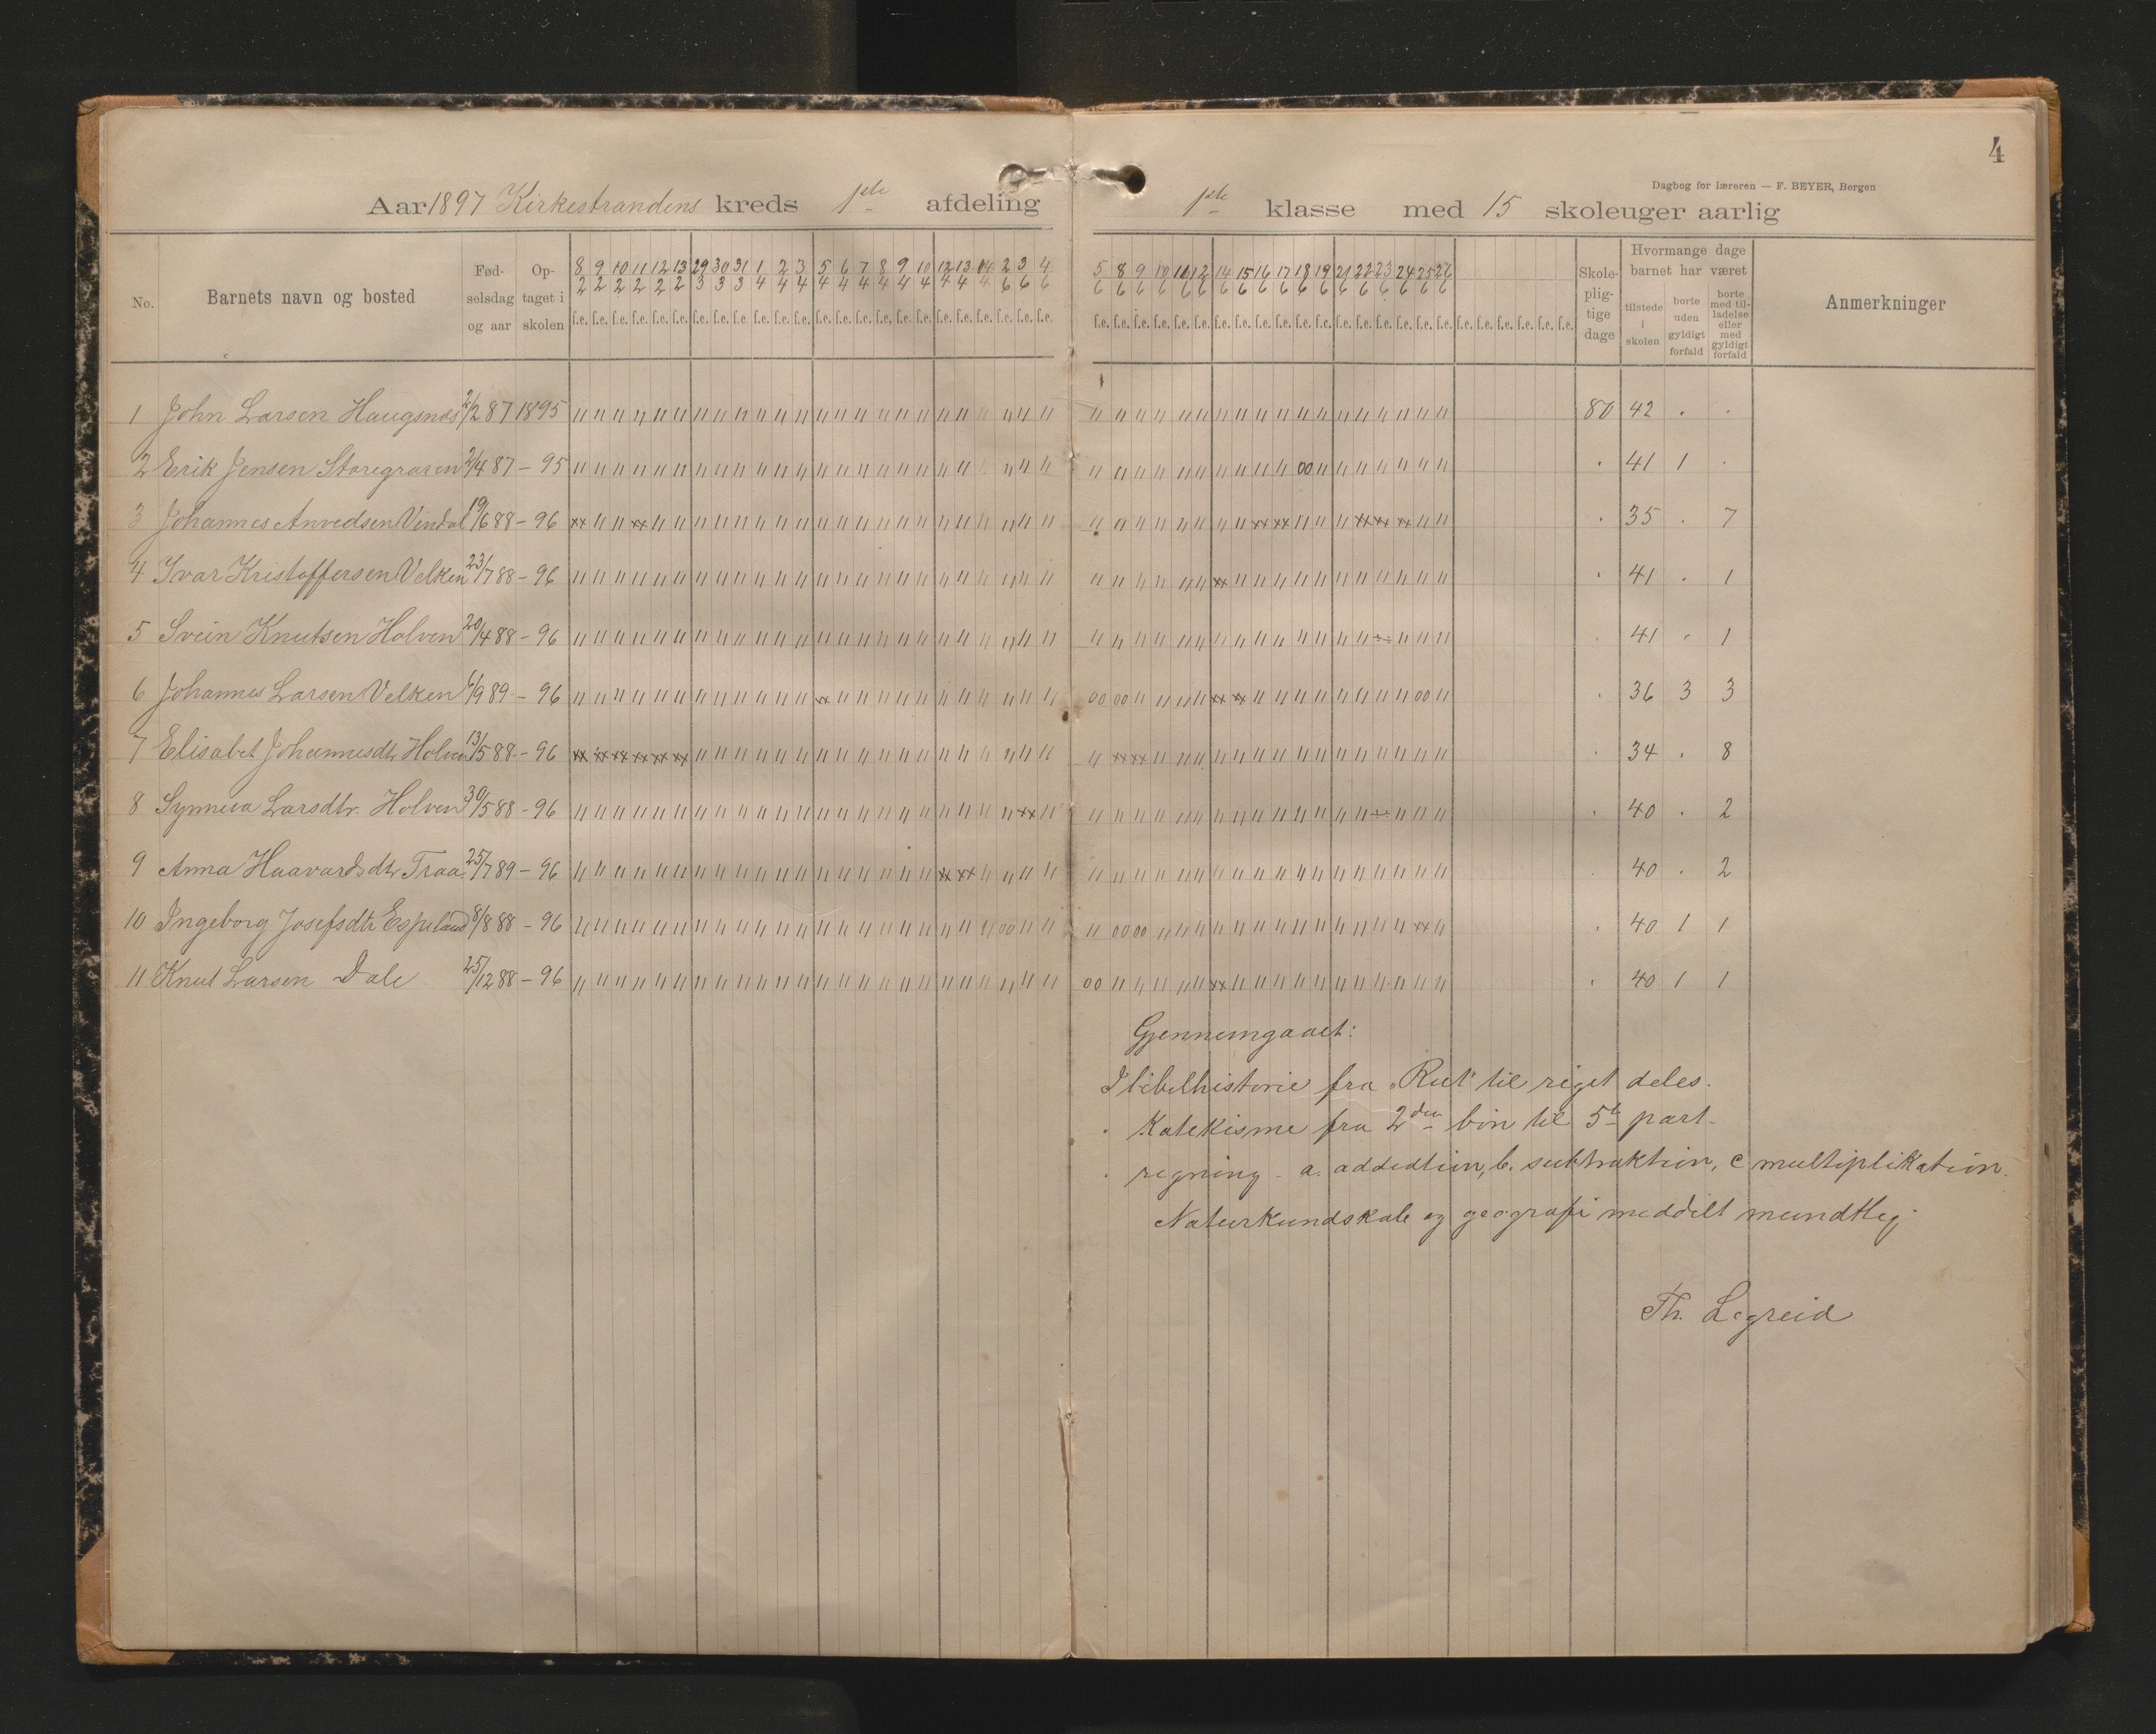 4
Dagbog for læreren — F. BEYER, Bergen
Aar 1897 Kirkestrandens kreds 1ste afdeling 1ste klasse med 15 skoleuger aarlig
No. Barnets navn og bosted Fød-selsdag og aar Op-taget i skolen Skole-plig-tige dage Hvormange dage barnet har været tilstede i skolen borte uden gyldigt forfald borte med til-ladelse eller med gyldigt forfald Anmerkninger
8/2 9/2 10/2 11/2 12/2 13/2 29/3 30/3 31/3 1/4 2/4 3/4 5/4 6/4 7/4 8/4 9/4 10/4 12/4 13/4 14/4 2/6 3/6 4/6 5/6 8/6 9/6 10/6 11/6 12/6 14/6 15/6 16/6 17/6 18/6 19/6 21/6 22/6 23/6 24/6 25/6 26/6
1 John Larsen Haugsnæs 2/2 87 1895 80 42 . .
2 Erik Jensen Storegraven 2/4 87 - 95 . 41 1 .
3 Johannes Anvedsen Vindal 19/6 88 - 96 . 35 . 7
4 Ivar Kristoffersen Velken 23/7 88 - 96 . 41 . 1
5 Svein Knutsen Holven 20/4 88 - 96 . 41 . 1
6 Johannes Larsen Velken 6/9 89 - 96 . 36 3 3
7 Elisabet Johannesdtr Holven 13/5 88 - 96 . 34 . 8
8 Synneva Larsdtr. Holven 30/5 88 - 96 . 40 . 2
9 Anna Haavardsdtr Traa 25/7 89 - 96 . 40 . 2
10 Ingeborg Josefsdtr Espeland 8/8 88 - 96 . 40 1 1
11 Knut Larsen Dale 25/12 88 - 96 . 40 1 1
Gjennemgaaet:
I bibelhistorie fra "Rut" til riget deles.
" Katekisme fra 2den bøn til 5te part.
" regning - a. addedtion, b. subtraktion, c multiplikation.
Naturkundskab og geografi meddelt mundtlig.
Th. Legreid